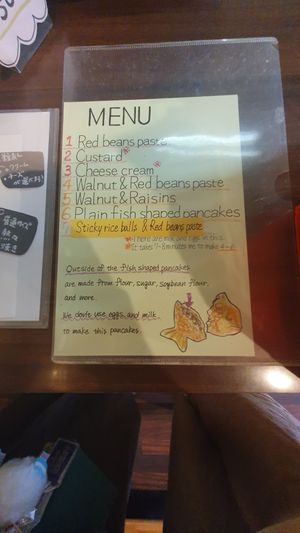 MENU
1 Red beans paste
2 Custard*
3 Cheese cream*
4 Walnut & Red beans paste
5 Walnut & Raisins
6 Plain fish shaped pancakes
7 Sticky rice balls & Red beans paste
* There are milk and eggs in this.
* It takes 7-8 minutes to make 4-6
Outside of the fish shaped pancakes
are made from flour, sugar, soybean flour,
and more.
We don't use eggs and milk
to make this pancakes.